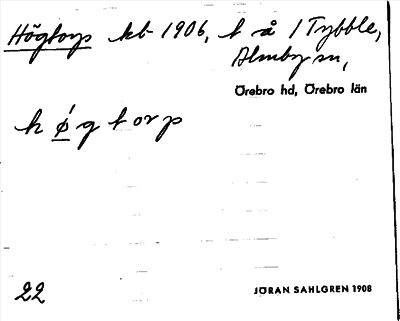 Högtorp kb 1906, t å 1 Tybble,
Almby sn,
Örebro hd, Örebro län
hǿgtorp
22
JÖRAN SAHLGREN 1908